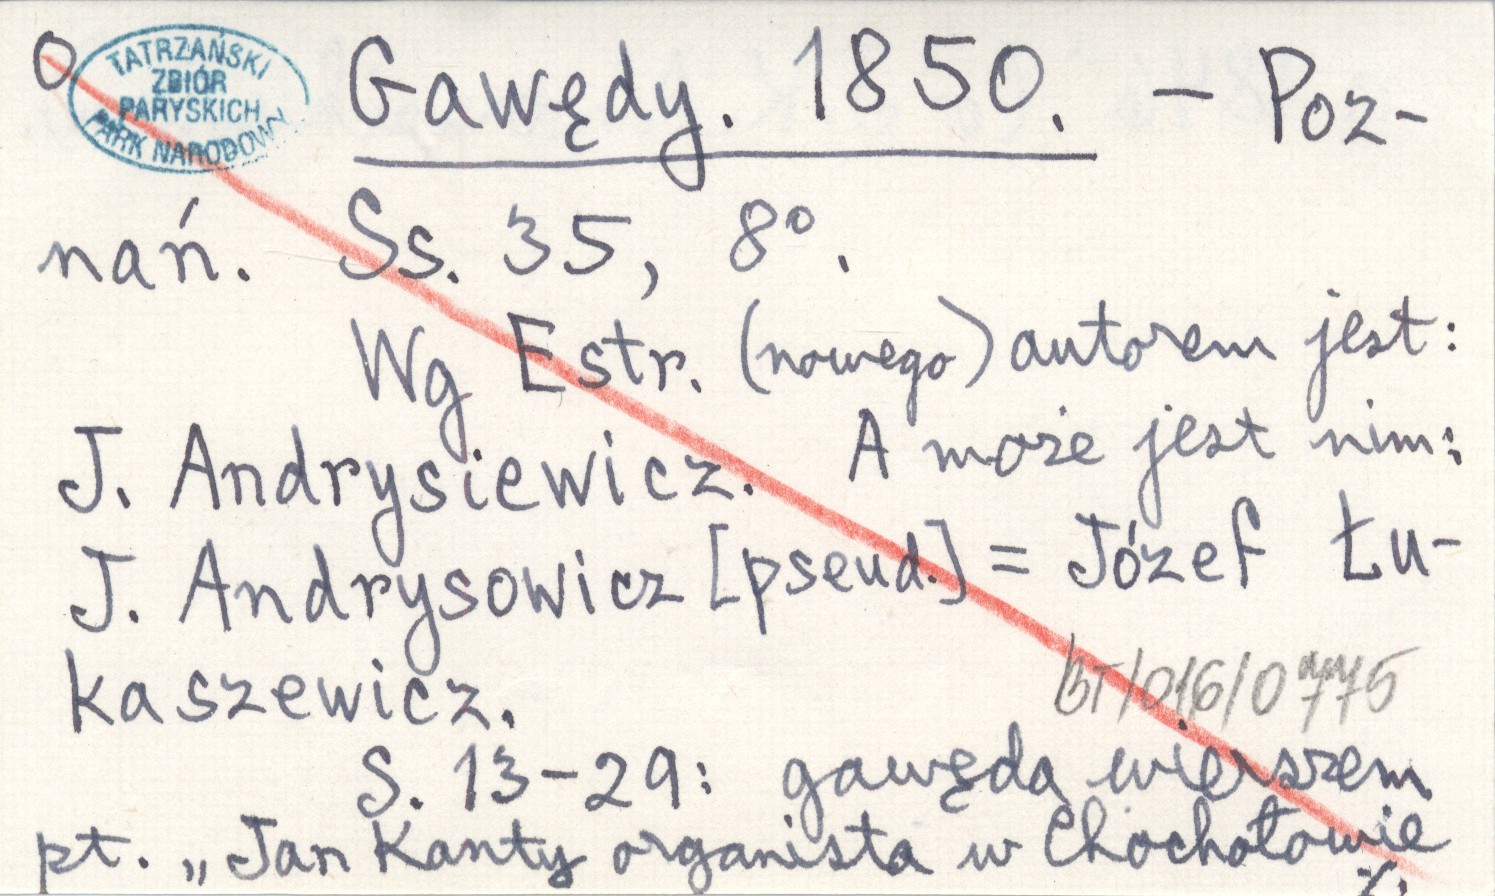 O
TATRZAŃSKI
ZBIÓR
PARYSKICH
PARK NARODOWY
Gawędy. 1850. – Poz-
nań. Ss. 35, 8°.
Wg Estr. (nowego) autorem jest:
J. Andrysiewicz. A może jest nim:
J. Andrysowicz [pseud.] = Józef Łu-
kaszewicz.
BT/016/0775
S. 13–29: gawęda wierszem
pt. „Jan Kanty organista w Chochołowie